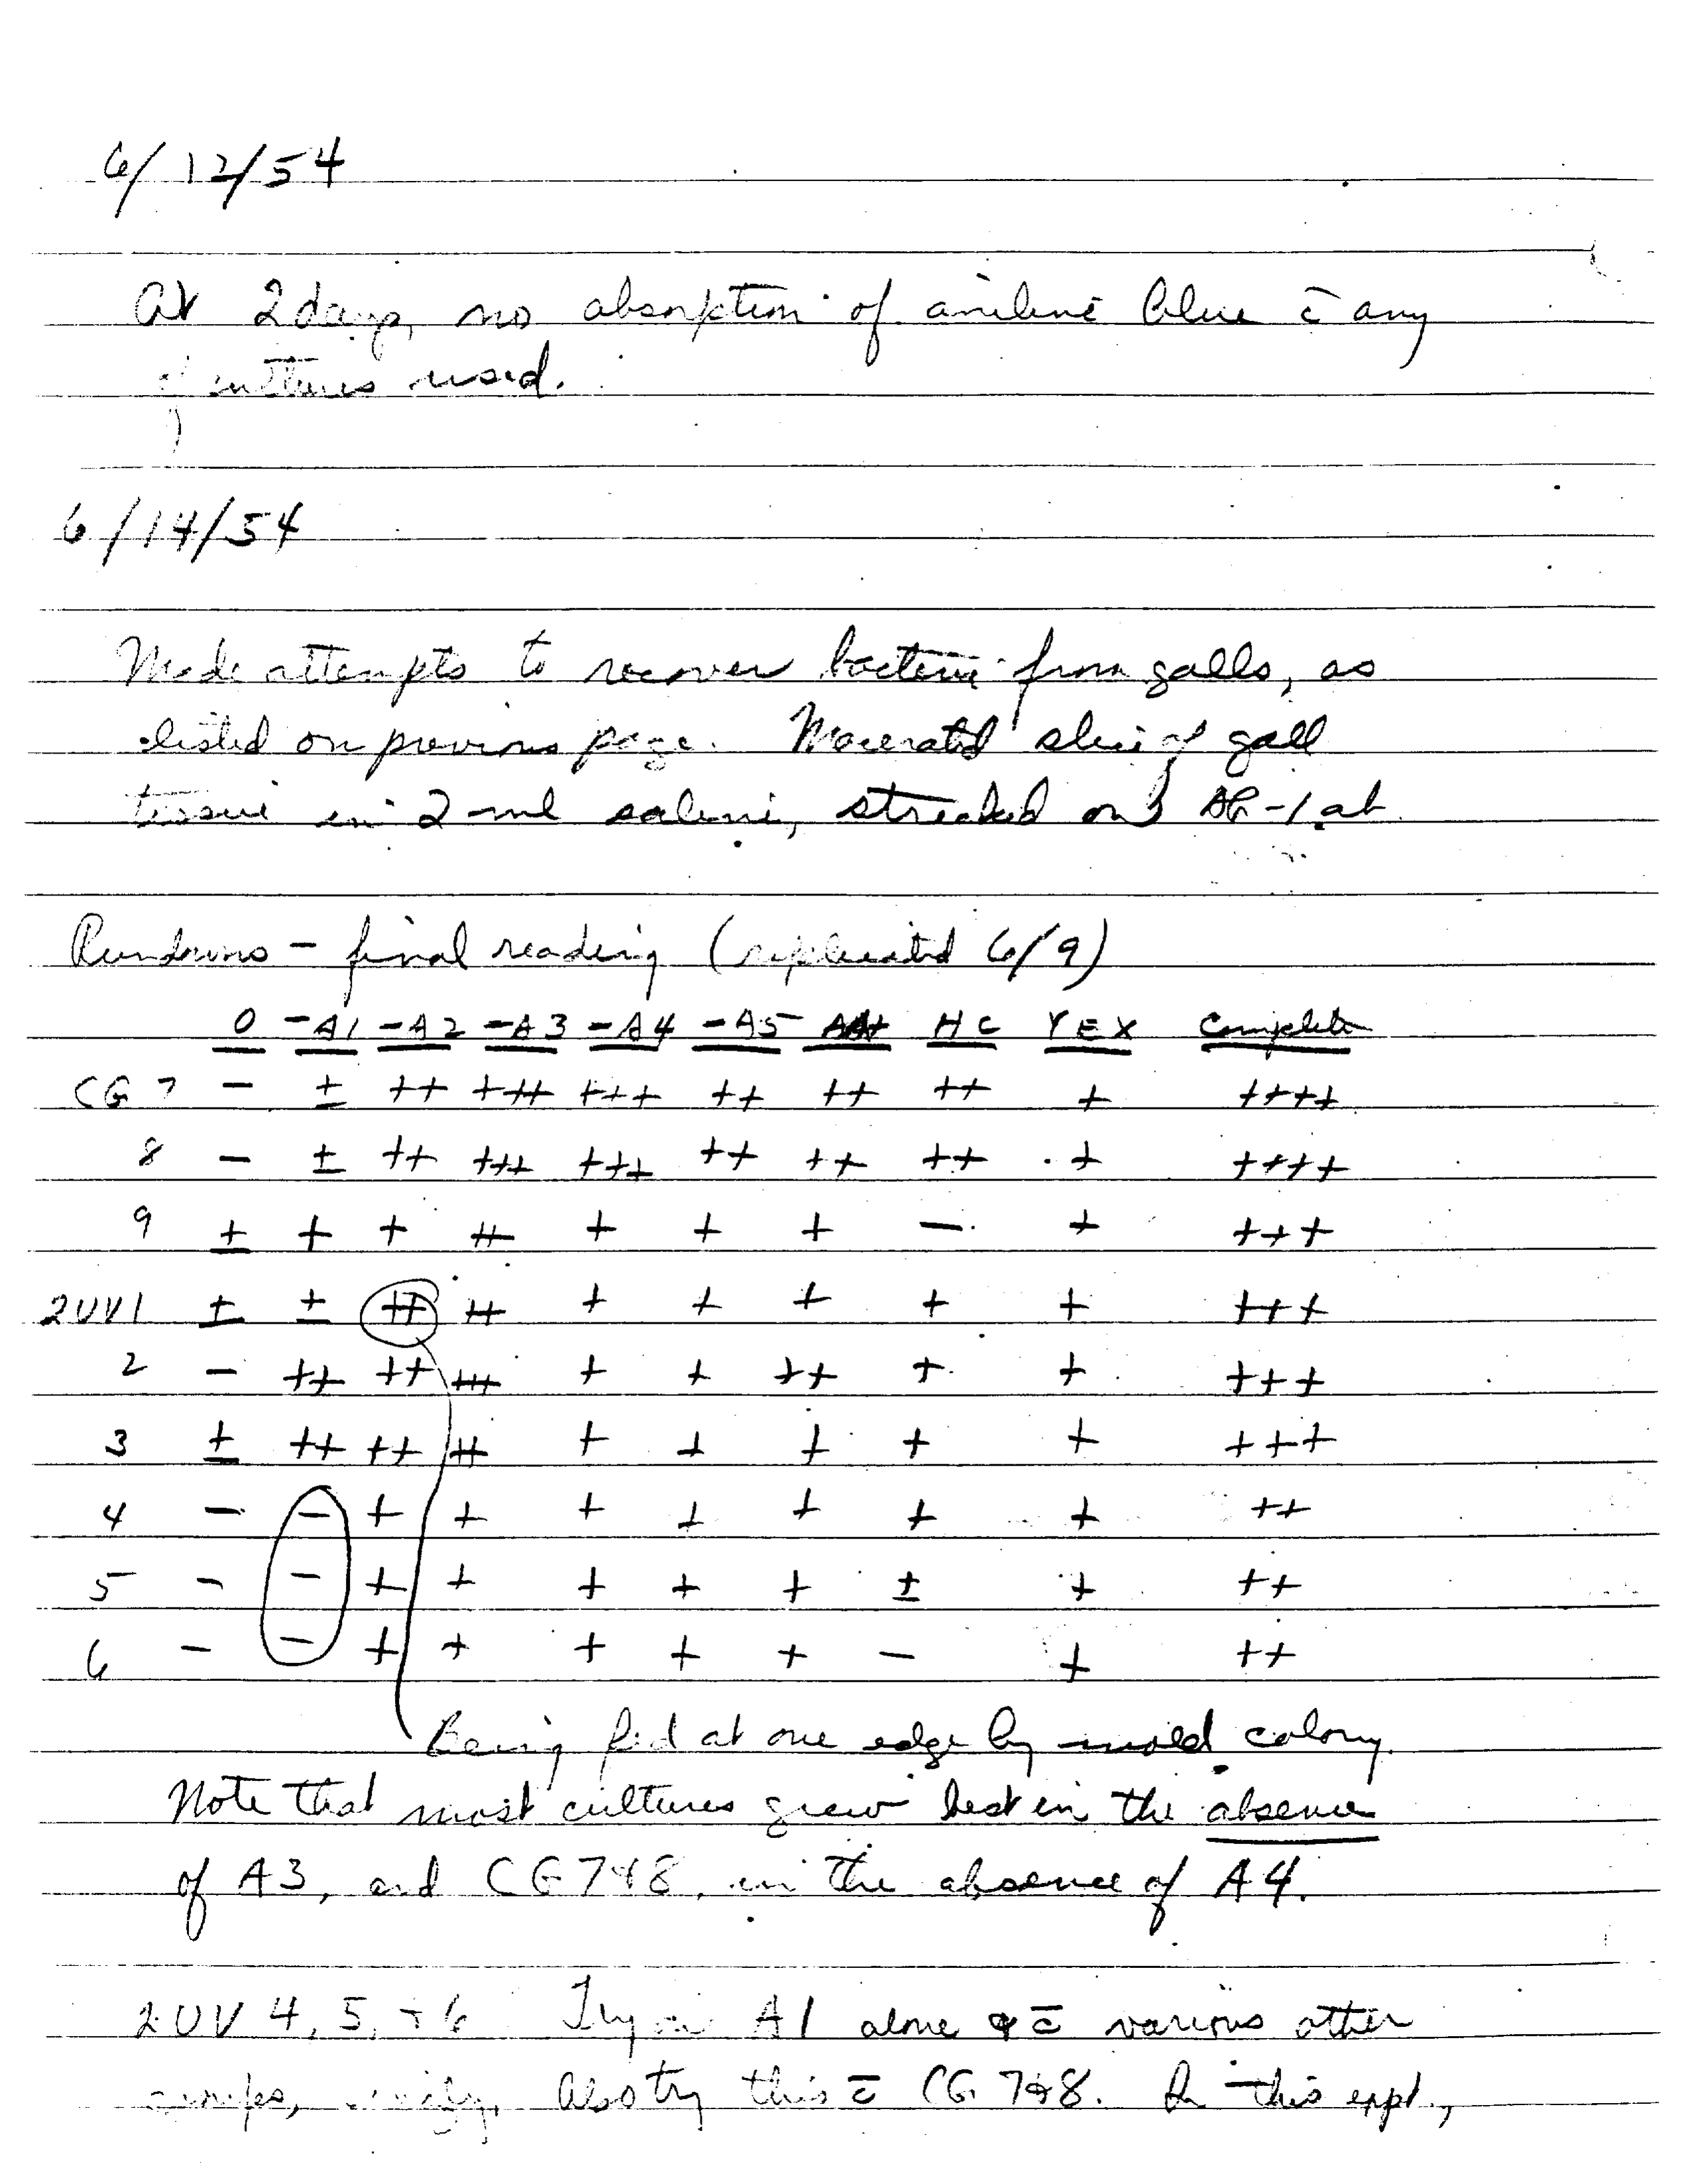 6/12/54
At 2 days, no absorption of aniline blue c̄ any
of cultures used.
6/14/54
Made attempts to recover bacteria from galls, as
listed on previous page. Macerated slice of gall
tissue in 2 ml saline, streaked on at
Rundowns - final reading (replicated 6/9)
0 -A1 -A2 -A3 -A4 -A5 AA+ HC YEX Complete
CG 7 - ± ++ +++ +++ ++ ++ ++ + ++++
8 - ± ++ +++ +++ ++ ++ ++ + ++++
9 ± + + ++ + + + - + +++
2UV1 ± ± ++ ++ + + + + + +++
2 - ++ ++ +++ + + ++ + + +++
3 ± ++ ++ ++ + + + + + +++
4 - - + + + + + + + ++
5 - - + + + + + ± + ++
6 - - + + + + + - + ++
Being fed at one edge by mold colony.
Note that most cultures grew best in the absence
of A3, and CG 7&8, in the absence of A4.
2UV 4, 5, + 6 Try on A1 alone & c̄ various other
singly. Also try this c̄ CG 7&8. In this expt.,